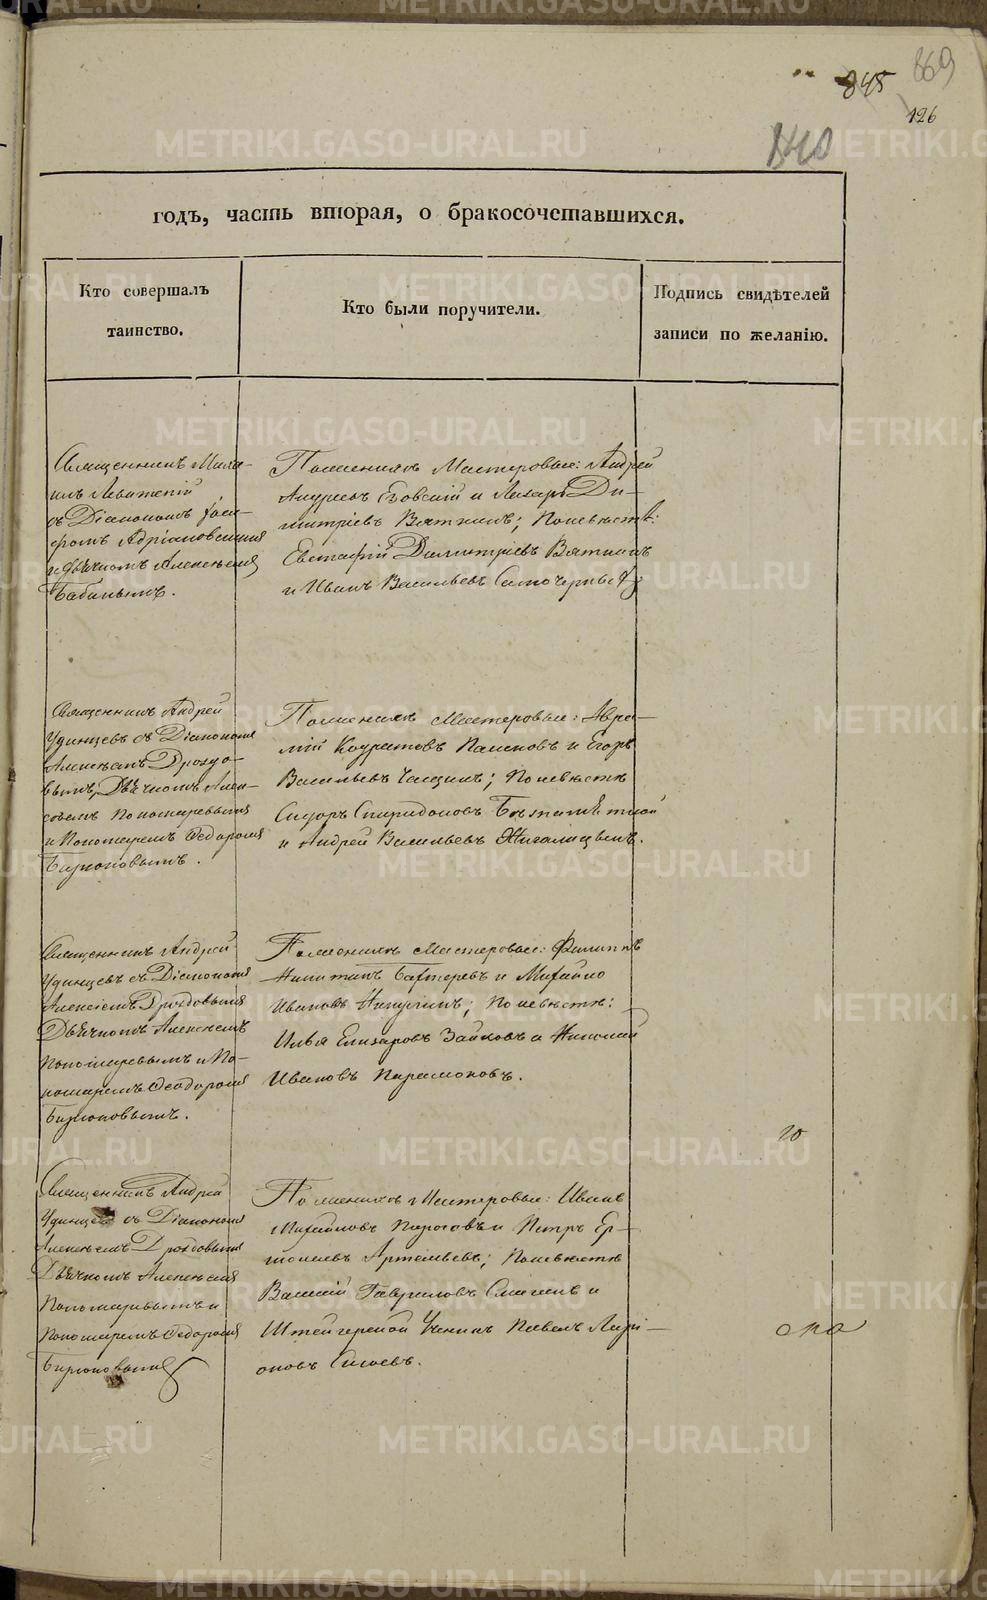 845
869
126
840
годъ, часть вторая, о бракосочетавшихся.
Кто совершалъ
таинство.
Кто были поручители.
Подпись свидѣтелей
записи по желанію.
Священникъ Миха-
илъ
съ Діакономъ Іоси-
фомъ Адріановскимъ
и Дьячкомъ Алексѣемъ
Бабинымъ.
По женихѣ Мастеровые: Андрей
и Лазарь Ди-
митріевъ Вяткинъ; По невѣстѣ:
Евстафій Димитріевъ Вяткинъ
и Иванъ Васильевъ
Священникъ Андрей
Удинцевъ съ Діакономъ
Алексѣемъ Дроздо-
вымъ, Дьячкомъ Алек-
сѣемъ Пономаревымъ
и Пономаремъ Ѳедоромъ
Бирюковымъ.
По женихѣ мастеровые: Авра-
мій Кондратовъ и Егоръ
Васильевъ Чащинъ; По невѣстѣ
Сидоръ Спиридоновъ
и Андрей Васильевъ
Священникъ Андрей
Удинцевъ съ Діакономъ
Алексѣемъ Дроздовымъ
Дьячкомъ Алексѣемъ
Пономаревымъ и По-
номаремъ Ѳеодоромъ
Бирюковымъ.
По женихѣ мастеровые: Филиппъ
Никитинъ и Михайло
Ивановъ Никулинъ; По невѣстѣ:
Илья Елизаровъ Зайковъ и Николай
Ивановъ Парамоновъ.
Священникъ Андрей
Удинцевъ съ Діакономъ
Алексѣемъ Дроздовымъ
Дьячкомъ Алексѣемъ
Пономаревымъ и
Пономаремъ Ѳедоромъ
Бирюковымъ
По женихѣ Мастеровые: Иванъ
Михайловъ Пироговъ и Петръ Ер-
молаевъ Артемьевъ; По невѣстѣ
Василій Гавриловъ и
Штейгерской Ученикъ Павелъ Лари-
оновъ Сысоевъ.
METRIKI.GASO-URAL.RU